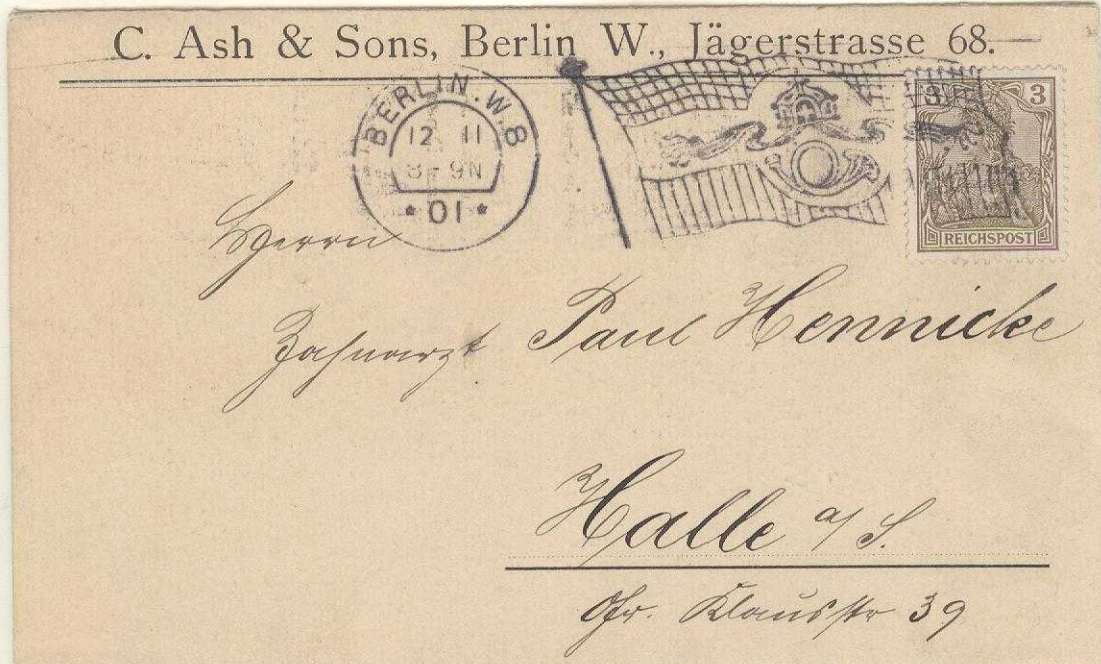 C. Ash & Sons, Berlin W., Jägerstrasse 68.
BERLIN.W.8
12 11
8-9N
* 01 *
3 3
REICHSPOST
Herrn
Zahnarzt Paul Hennicke
Halle a/S.
Gr. Klausstr 39